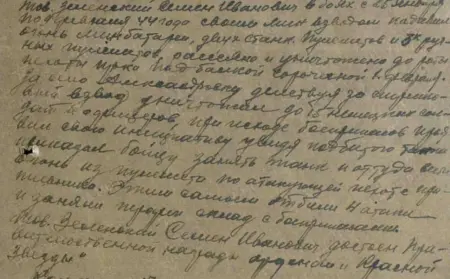 Тов. Зеленский Семен Иванович в боях с 26 января
по февраля 44 года своим мин взводом подавил
огонь минбатареи, двух станк. пулеметов и 3х руч-
ных пулеметов, рассеяно и уничтожено до роты
пехоты
за село Александровку действуя за
взвод уничтожил до 15 немецких сол-
дат и офицеров, при исходе боеприпасов проя-
вил свою инициативу увидя подбитого танк
приказал бойцу занять танк и оттуда вел
огонь из пулемета по атакующей пехоте про-
тивника. Этим самым отбили 4 атаки
и заняли склад с боеприпасами
Тов. Зеленский Семен Иванович достоен пра-
вительственной награды орденом „Красной
Звезды"